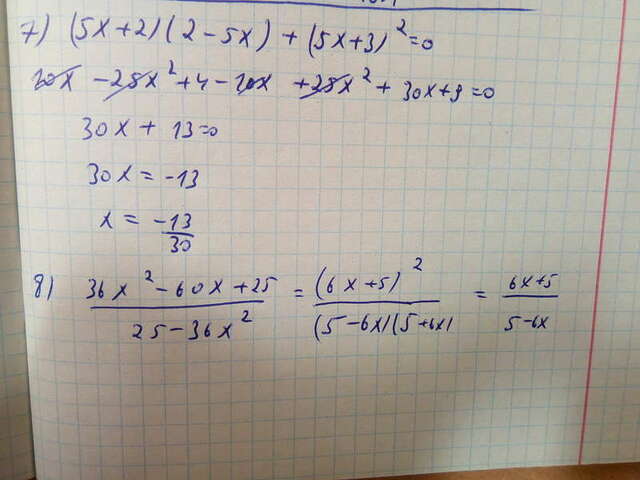 7) (5x+2)(2-5x)+(5x+3)²=0
10x - 25x² + 4 - 10x + 25x² + 30x + 9 = 0
30x + 13 = 0
30x = -13
x = -13/30
8) 36x² - 60x + 25 / 25 - 36x² = (6x+5)² / (5-6x)(5+6x) = 6x+5 / 5-6x